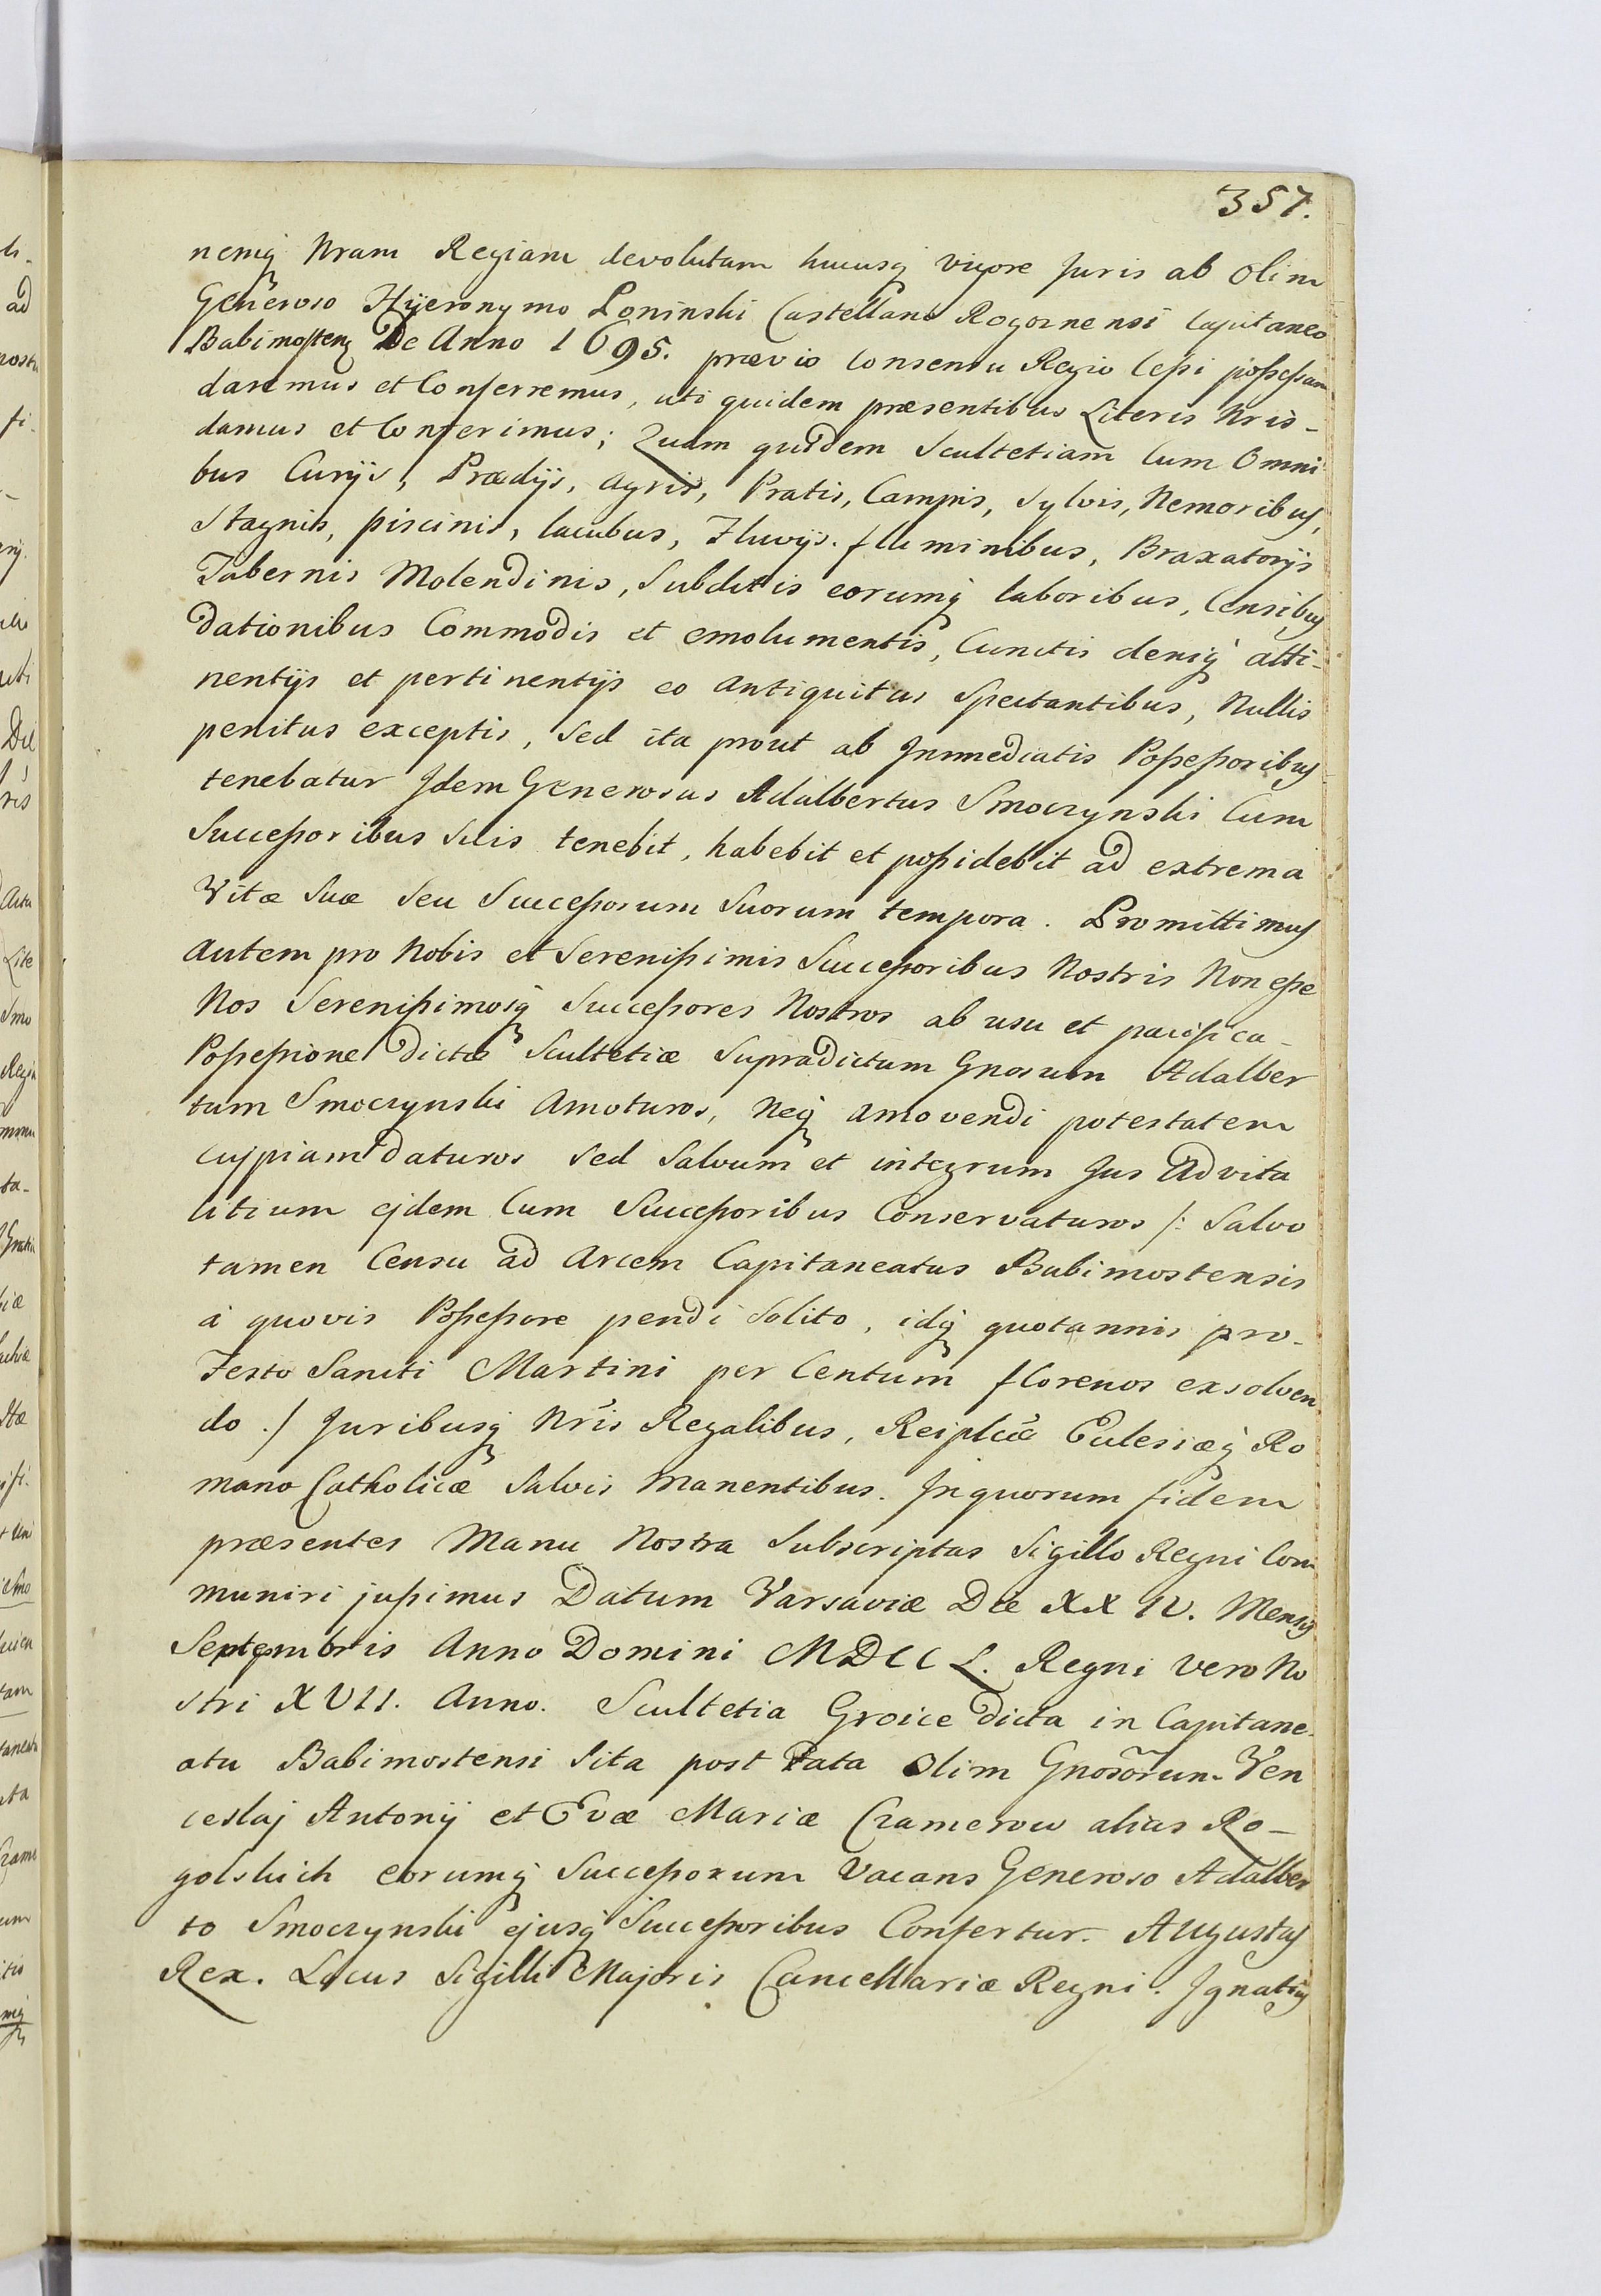 357.
nemq Nram Regiam devolutam hucusq vigore Juris ab olim
Generoso Hyeronymo Poninski Castellano Rogoznensi Capitaneo
Babimosteng De Anno 1695. prævio Consensu Regio Cessi possessam
daremus et Conferremus, uti quidem præsentibus Literis Nris
damus et Conferimus; Quam quidem Scultetiam Cum Omni
bus Curijs, Prædijs, Agris, Pratis, Campis, Sylvis, Nemoribus,
Stagnis, piscinis, lacubus, Fluvijs. fluminibus, Braxatorijs
Tabernis Molendinis, Subditis eorumq laboribus, Censibus
dationibus Commodis et emolumentis, Cunctis deniq atti-
nentijs et pertinentijs eo antiquitus Spectantibus, Nullis
penitus exceptis, Sed ita prout ab Immediatis Possessoribus
tenebatur Idem Generosus Adalbertus Smoczynski Cum
Successoribus Suis tenebit, habebit et possidebit ad extrema
Vitæ Suæ Seu Successorum Suorum tempora. Promittimus
Autem pro Nobis et Serenissimis Successoribus Nostris Non esse
Nos Serenissimosq Successores Nostros ab usu et pacifica-
Possessione dictæ Scultetiæ Supradictum Gnosum Adalber
tum Smoczynski Amoturos, Neq amovendi potestatem
cujpiam daturos Sed Salvum et integrum Jus Advita
litium ejdem Cum Successoribus Conservaturos /: Salvo
tamen Censu ad Arcem Capitaneatus Babimostensis
à quovis Possessore pendi Solito, idq quotannis pro-
Festo Sancti Martini per Centum florenos exsolven
do ./ Juribusq Nris Regalibus, Reiplcæ Eclesiæq Ro
mano Catholicæ Salvis manentibus. In quorum fidem
præsentes Manu Nostra Subscriptas Sigillo Regni Com
muniri jussimus Datum Varsaviæ Die XXIV. Mensis
Septembris Anno Domini MDCCL. Regni Vero No
stri XVII. Anno. Scultetia Groice dicta in Capitane-
atu Babimostensi Sita post Fata Olim Gnosorum Ven
ceslaj Antonij et Evæ Mariæ Cramerow alias Ro-
golskich eorumq Successorum Vacans Generoso Adalber
to Smoczynski ejusq Successoribus Confertur. Augustus
Rex. Locus Sigilli Majoris Cancellariæ Regni. Ignatius